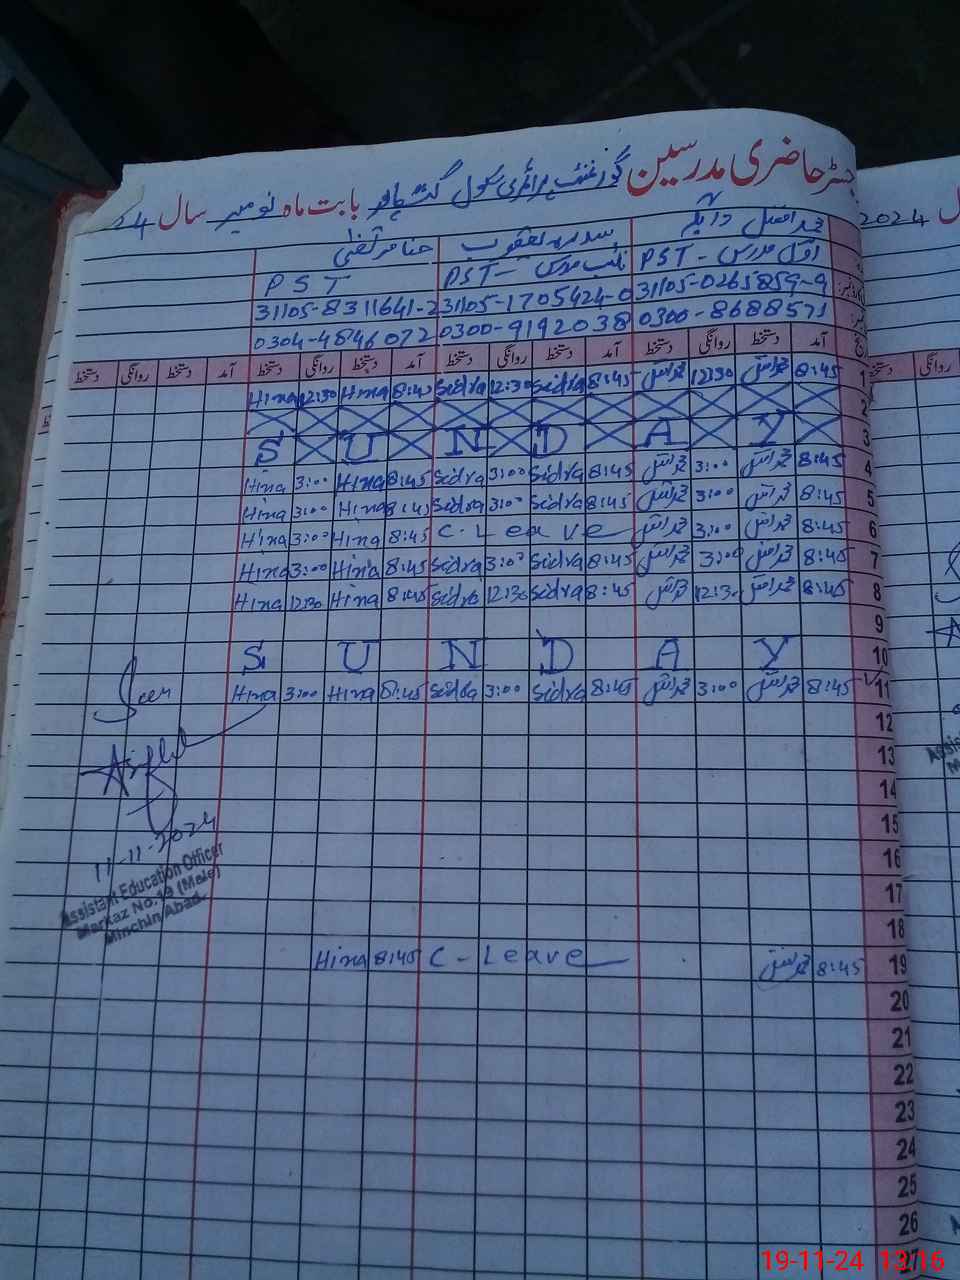 رجسٹر حاضری مدرسین گورنمنٹ پرائمری سکول بابت ماہ نومبر سال 24
محمد افضل سدرہ یعقوب حنا مرتضیٰ
اول مدرس - PST نائب مدرس - PST PST
31105-0265859-9 31105-1705424-0 31105-8311641-2
0300-8688571 0300-9192038 0304-4846072
آمد دستخط روانگی دستخط آمد دستخط روانگی دستخط آمد دستخط روانگی دستخط آمد دستخط روانگی دستخط
Hina 12:30 Hina 8:45 Sidra 12:30 Sidra 8:45 12:30 8:45 1
2
S U N D A Y 3
Hina 3:00 Hina 8:45 Sidra 3:00 Sidra 8:45 3:00 8:45 4
Hina 3:00 Hina 8:45 Sidra 3:00 Sidra 8:45 3:00 8:45 5
Hina 3:00 Hina 8:45 C-Leave 3:00 8:45 6
Hina 3:00 Hina 8:45 Sidra 3:00 Sidra 8:45 3:00 8:45 7
Hina 12:30 Hina 8:45 Sidra 12:30 Sidra 8:45 12:30 8:45 8
9
S U N D A Y 10
Hina 3:00 Hina 8:45 Sidra 3:00 Sidra 8:45 3:00 8:45 11
Seen
12
13
14
15
11-11-2024
16
Assistant Education Officer
17
Markaz No.19 (Male)
Minchin Abad.
18
Hina 8:45 C-Leave 8:45 19
20
21
22
23
24
25
26
27
2024
روانگی
19-11-24 13:16